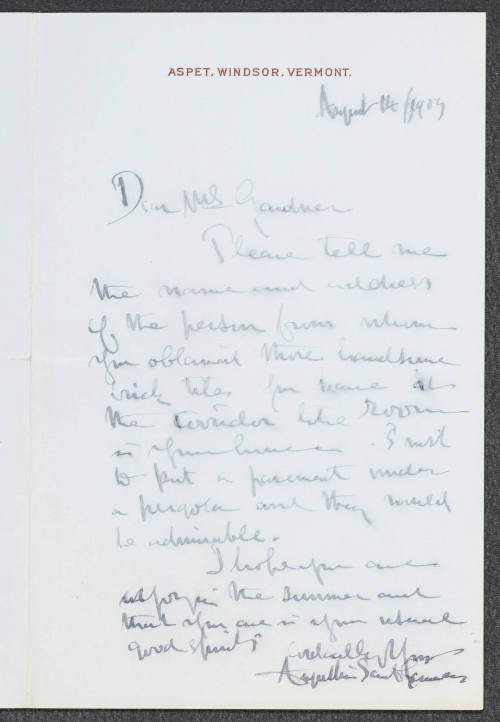 ASPET, WINDSOR, VERMONT.
August 14/1903
Dear Mrs Gardner
Please tell me
the name and address
of the person from whom
you obtained those handsome
brick tiles you have in
the corridor like room
in your house. I wish
to put a pavement under
a pergola and they would
be admirable.
I hope you are
enjoying the summer and
that you are in your usual
good spirits
Cordially Yours
Augustus Saint Gaudens